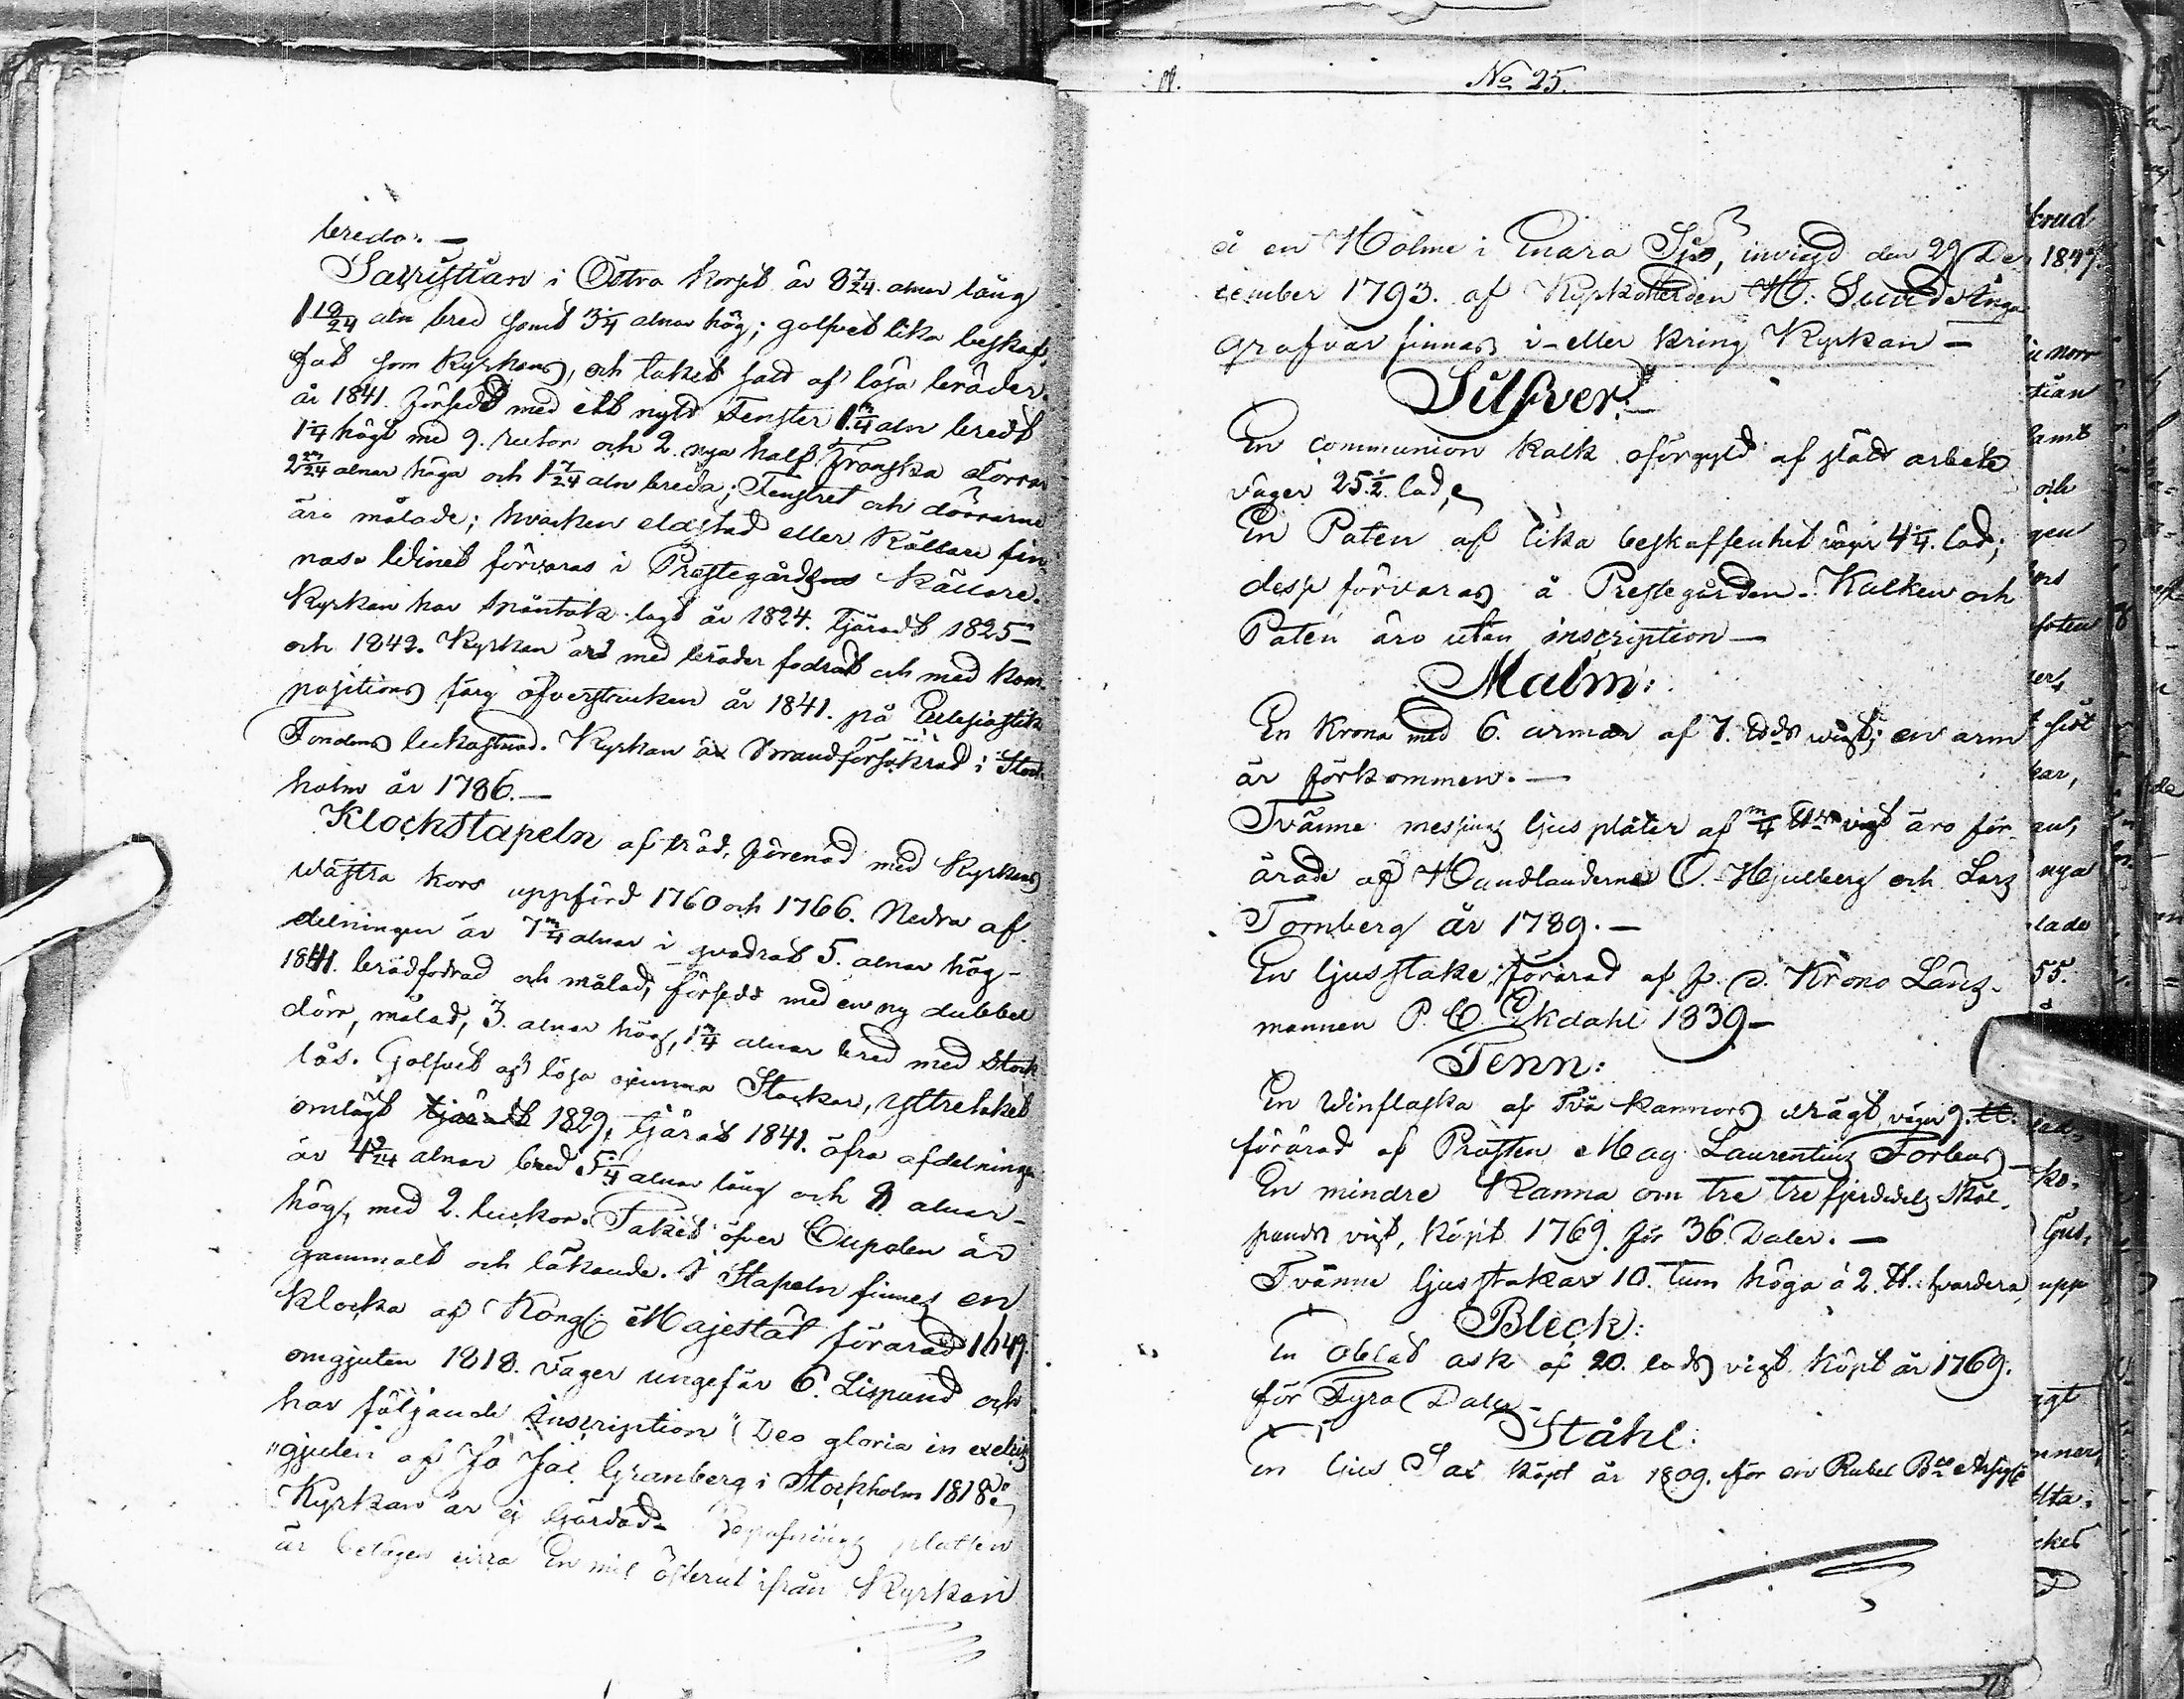 breda. —
Sacristian i Östra korset är 8 7/24 alnar lång
1 19/24 aln bred samt 3 1/4 alnar hög; golfvet lika beskaf-
fat som kyrkans, och taket satt af lösa bräder.
år 1841. försedd med ett nytt Fenster 1 3/4 aln bredt
1 1/4 högt med 9. rutor och 2. nya half Franska dörrar
2 alnar höga och 1 7/24 aln breda; Fenstret och dörrarne
äro målade; hvarken eldstad eller Källare fin-
nas. Winet förvaras i Prestegårdens Källare.
Kyrkan har spåntak lagt år 1824. tjäradt 1825
och 1842. Kyrkan är med bräder fodrad och med kom-
positions färg öfverstruken år 1841. på Ecclesiastik
Fondens bekostnad. Kyrkan är Brandförsäkrad i Stock-
holm år 1786. —
Klockstapeln af träd, förenad med Kyrkans
wästra kors uppförd 1760 och 1766. Nedra af-
delningen är 7 3/4 alnar i qvadrat 5. alnar hög-
1841. brädfodrad och målad, försedd med en ny dubbel
dörr, målad, 3. alnar hög, 1 3/4 alnar bred med Stock
lås. Golfvet af lösa ojemna Stockar, yttre taket
omlagt tjäradt 1829, tjärat 1841. öfra afdelningen
är 4 alnar bred 5 1/4 alnar lång och alnar-
hög, med 2. luckor. Taket öfver Cupolen är
gammalt och läkande. I Stapeln finnes en
klocka af Kongl: Majestät förärad 1649
omgjuten 1818. väger ungefär 6. Lispund och
har följande inscription "Deo gloria in exelsis
"gjuten af Jo Jac Granberg i Stockholm 1818."
Kyrkan är ej gärdad. Begrafnings platsen
är belägen cirra En mil österut ifrån Kyrkan
No 25.
å en Holme i Enara Sjö, invigd den 29 De-
cember 1793. af Kyrkoherden H: Sund Inga
grafvar finnas i- eller kring Kyrkan —
Silfver: —
En communion kalk oförgyld af slätt arbete
väger 25 1/2 lod,
En Paten af lika beskaffenhet väger 4 1/4 lod;
dess förvaras å Prestegården. Kalken och
Paten äro utan inscription —
Malm:
En krona med 6. armar af 7. wigt; en arm
är förkommen. —
Tvänne messings ljus plåter af 3/4 vigt äro för-
ärade af Handlanderne O. Hjulberg och Lars
Tornberg år 1789. —
En ljusstake förärad af f. d. Krono Läns-
mannen P. C. Ekdahl 1839 —
Tenn:
En Winflaska af Två kannors drägt, väger 9. ℔:
förärad af Prosten Mag Laurentius Forbus —
En mindre Kanna om tre tre fjerdedels skål-
punds vigt, köpt 1769. för 36 Daler. —
Tvänne ljusstakar 10. tum höga à 2. ℔. hvardera
Bleck:
En oblat ask af 20. lods vigt köpt år 1769.
för Fyra Daler —
Ståhl:
En ljus Sax köpt år 1809. för en Rubel
krud
1847.
i norr
tian
samt
och
gen
foten
sist
kar,
nya
lade
55.
ko.
ljus,
upp